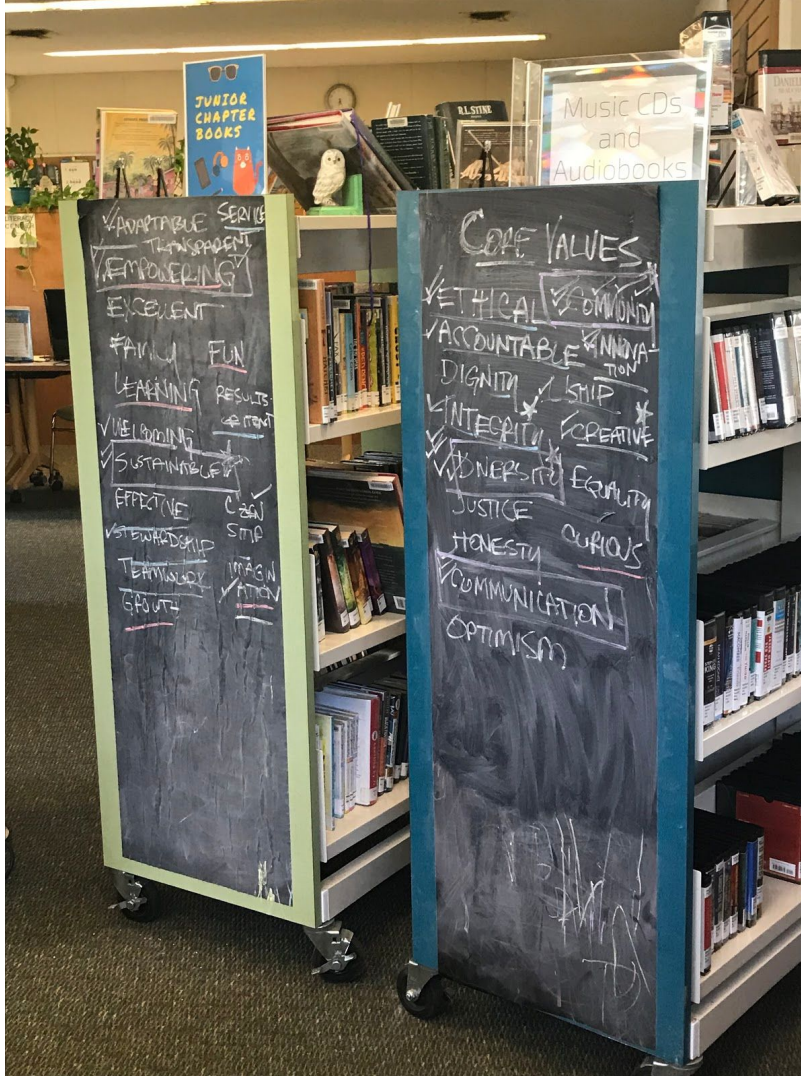 JUNIOR
CHAPTER
BOOKS
R.L. STINE
Music CDs
and
Audiobooks
ADAPTABLE SERVICE
TRANSPARENT
EMPOWERING
EXCELLENT
FAMILY FUN
LEARNING RESULTS-
WELCOMING
SUSTAINABLE
EFFECTIVE
STEWARDSHIP
TEAMWORK IMAGIN
ATION
CORE VALUES
ETHICAL COMMUNITY
ACCOUNTABLE INNOVA-
TION
DIGNITY L'SHIP
INTEGRITY CREATIVE
DIVERSITY EQUALITY
JUSTICE
HONESTY CURIOUS
COMMUNICATION
OPTIMISM